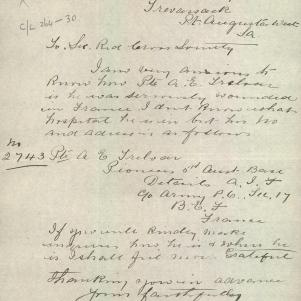 C/L 264-30.
Trevarrack
Pt. Augusta West
SA
To Sec. Red Cross Society
I am very anxious to
know how Pte A. E. Treloar
is he was seriously wounded
in France I dont know what
hospital he is in but his No
and adress is as follows
No
2743 Pte A E Treloar
Pioneers 5th Aust Base
Details A. I. F
C/o Army P. O. Sec, 17
B. E. F
France
If you will kindly make
inquires how he is & where he
is I shall feel most Grateful
Thanking you in advance
Yours faithfully